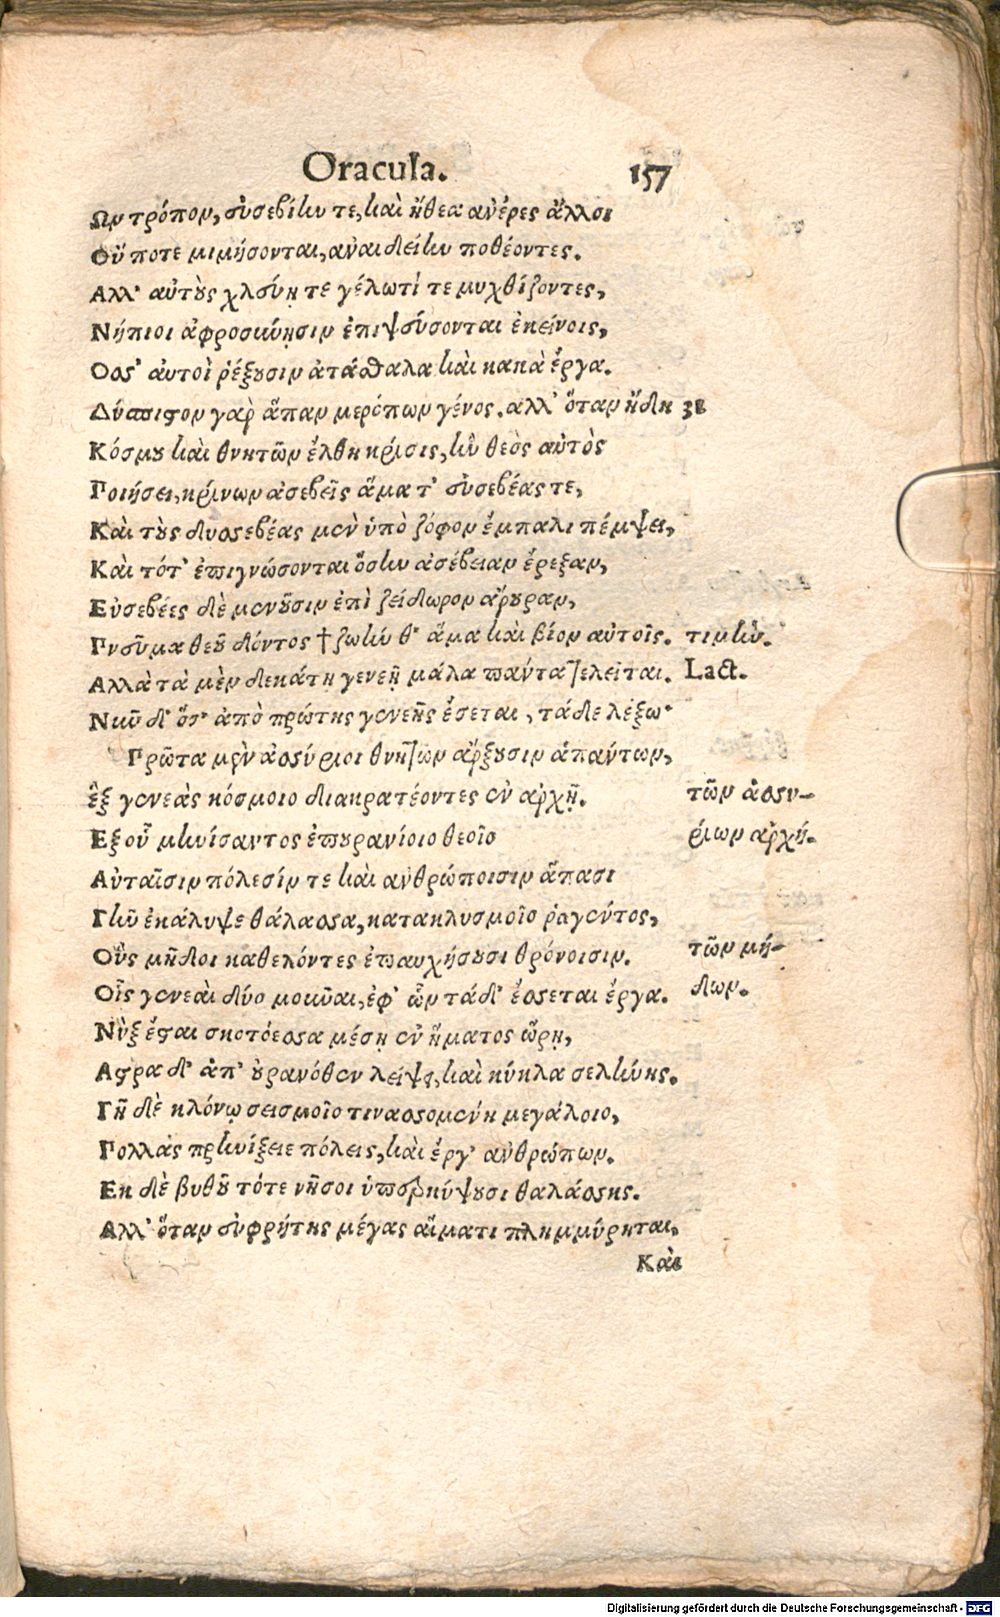 Oracula. 157
Ων τρόπον, εὐσεβίην τε, καὶ ἤθεα ἀνέρες ἄλλοι
Οὔ ποτε μιμήσονται, ἀναιδείην ποθέοντες.
Αλλ' αὐτοὺς χλεύῃ τε γέλωτί τε μυχθίζοντες,
Νήπιοι ἀφροσύνῃσιν ἐπιψεύσονται ἐκείνοις,
Οσσ' αὐτοὶ ῥέξουσιν ἀτάσθαλα καὶ κακὰ ἔργα.
Δύσπιστον γὰρ ἅπαν μερόπων γένος. ἀλλ' ὅταν ἤδη 38
Κόσμου καὶ θνητῶν ἔλθη κρίσις, ἣν θεὸς αὐτὸς
Ποιήσει, κρίνων ἀσεβεῖς ἅμα τ' εὐσεβέας τε,
Καὶ τοὺς δυσσεβέας μὲν ὑπὸ ζόφον ἔμπαλι πέμψει,
Καὶ τότ' ἐπιγνώσονται ὅσην ἀσέβειαν ἔρεξαν,
Εὐσεβέες δὲ μενοῦσιν ἐπὶ ζείδωρον ἄρουραν,
Πνεῦμα θεοῦ δόντος † ζωήν θ' ἅμα καὶ βίον αὐτοῖς. τιμήν.
Αλλὰ τὰ μὲν δεκάτη γενεῇ μάλα πάντα τελεῖται. Lact.
Νῦν δ' ὅσ' ἀπὸ πρώτης γενεῆς ἔσεται, τάδε λέξω·
Πρῶτα μὲν ἀσσύριοι θνητῶν ἄρξουσιν ἁπάντων,
ἓξ γενεὰς κόσμοιο διακρατέοντες ἐν ἀρχῇ. τῶν ἀσσυ-
Εξ οὗ μηνίσαντος ἐπουρανίοιο θεοῖο ρίων ἀρχή.
Αὐταῖσιν πόλεσίν τε καὶ ἀνθρώποισιν ἅπασι
Γῆν ἐκάλυψε θάλασσα, κατακλυσμοῖο ῥαγέντος,
Οὓς μῆδοι καθελόντες ἐπαυχήσουσι θρόνοισιν. τῶν μή-
Οἷς γενεαὶ δύο μοῦναι, ἐφ' ὧν τάδ' ἔσσεται ἔργα. δων.
Νὺξ ἔσται σκοτόεσσα μέσῃ ἐν ἤματος ὥρῃ,
Αστρα δ' ἀπ' οὐρανόθεν λείψει, καὶ κύκλα σελήνης.
Γῆ δὲ κλόνῳ σεισμοῖο τινασσομένη μεγάλοιο,
Πολλὰς πρηνίξειε πόλεις, καὶ ἔργ' ἀνθρώπων.
Εκ δὲ βυθοῦ τότε νῆσοι ὑπερκύψουσι θαλάσσης.
Αλλ' ὅταν εὐφρήτης μέγας αἵματι πλημμύρηται,
Καὶ
Digitalisierung gefördert durch die Deutsche Forschungsgemeinschaft - DFG